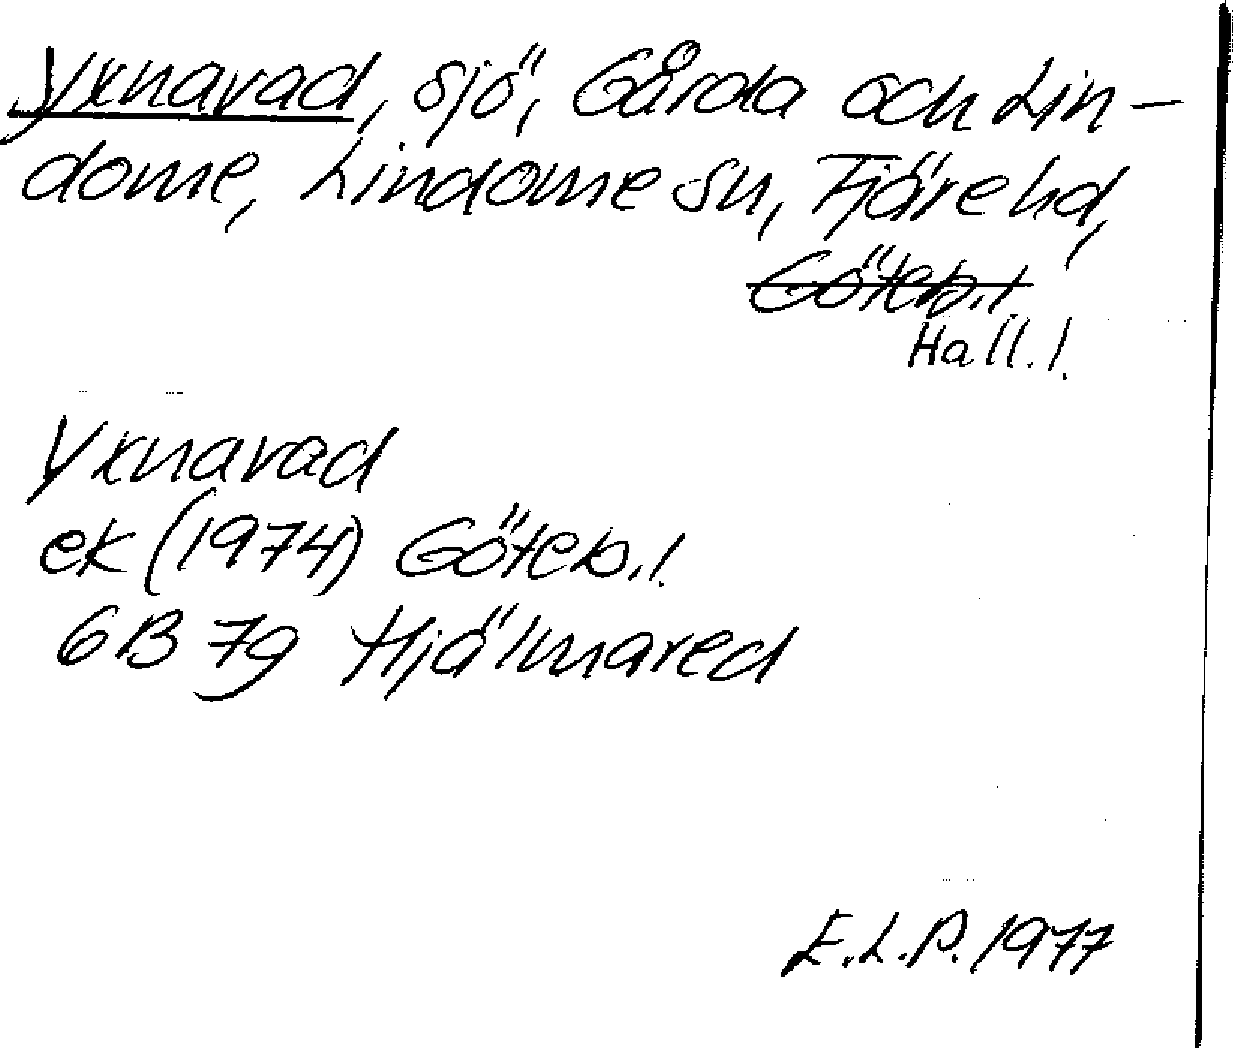 Yxnavad, sjö, Gårda och Lin-
dome, Lindome sn, Fjäre hd,
Göteb.l.
Hall.l.
Yxnavad
ek (1974) Göteb.l.
6B 7g Hjälmared
E.L.P. 1977